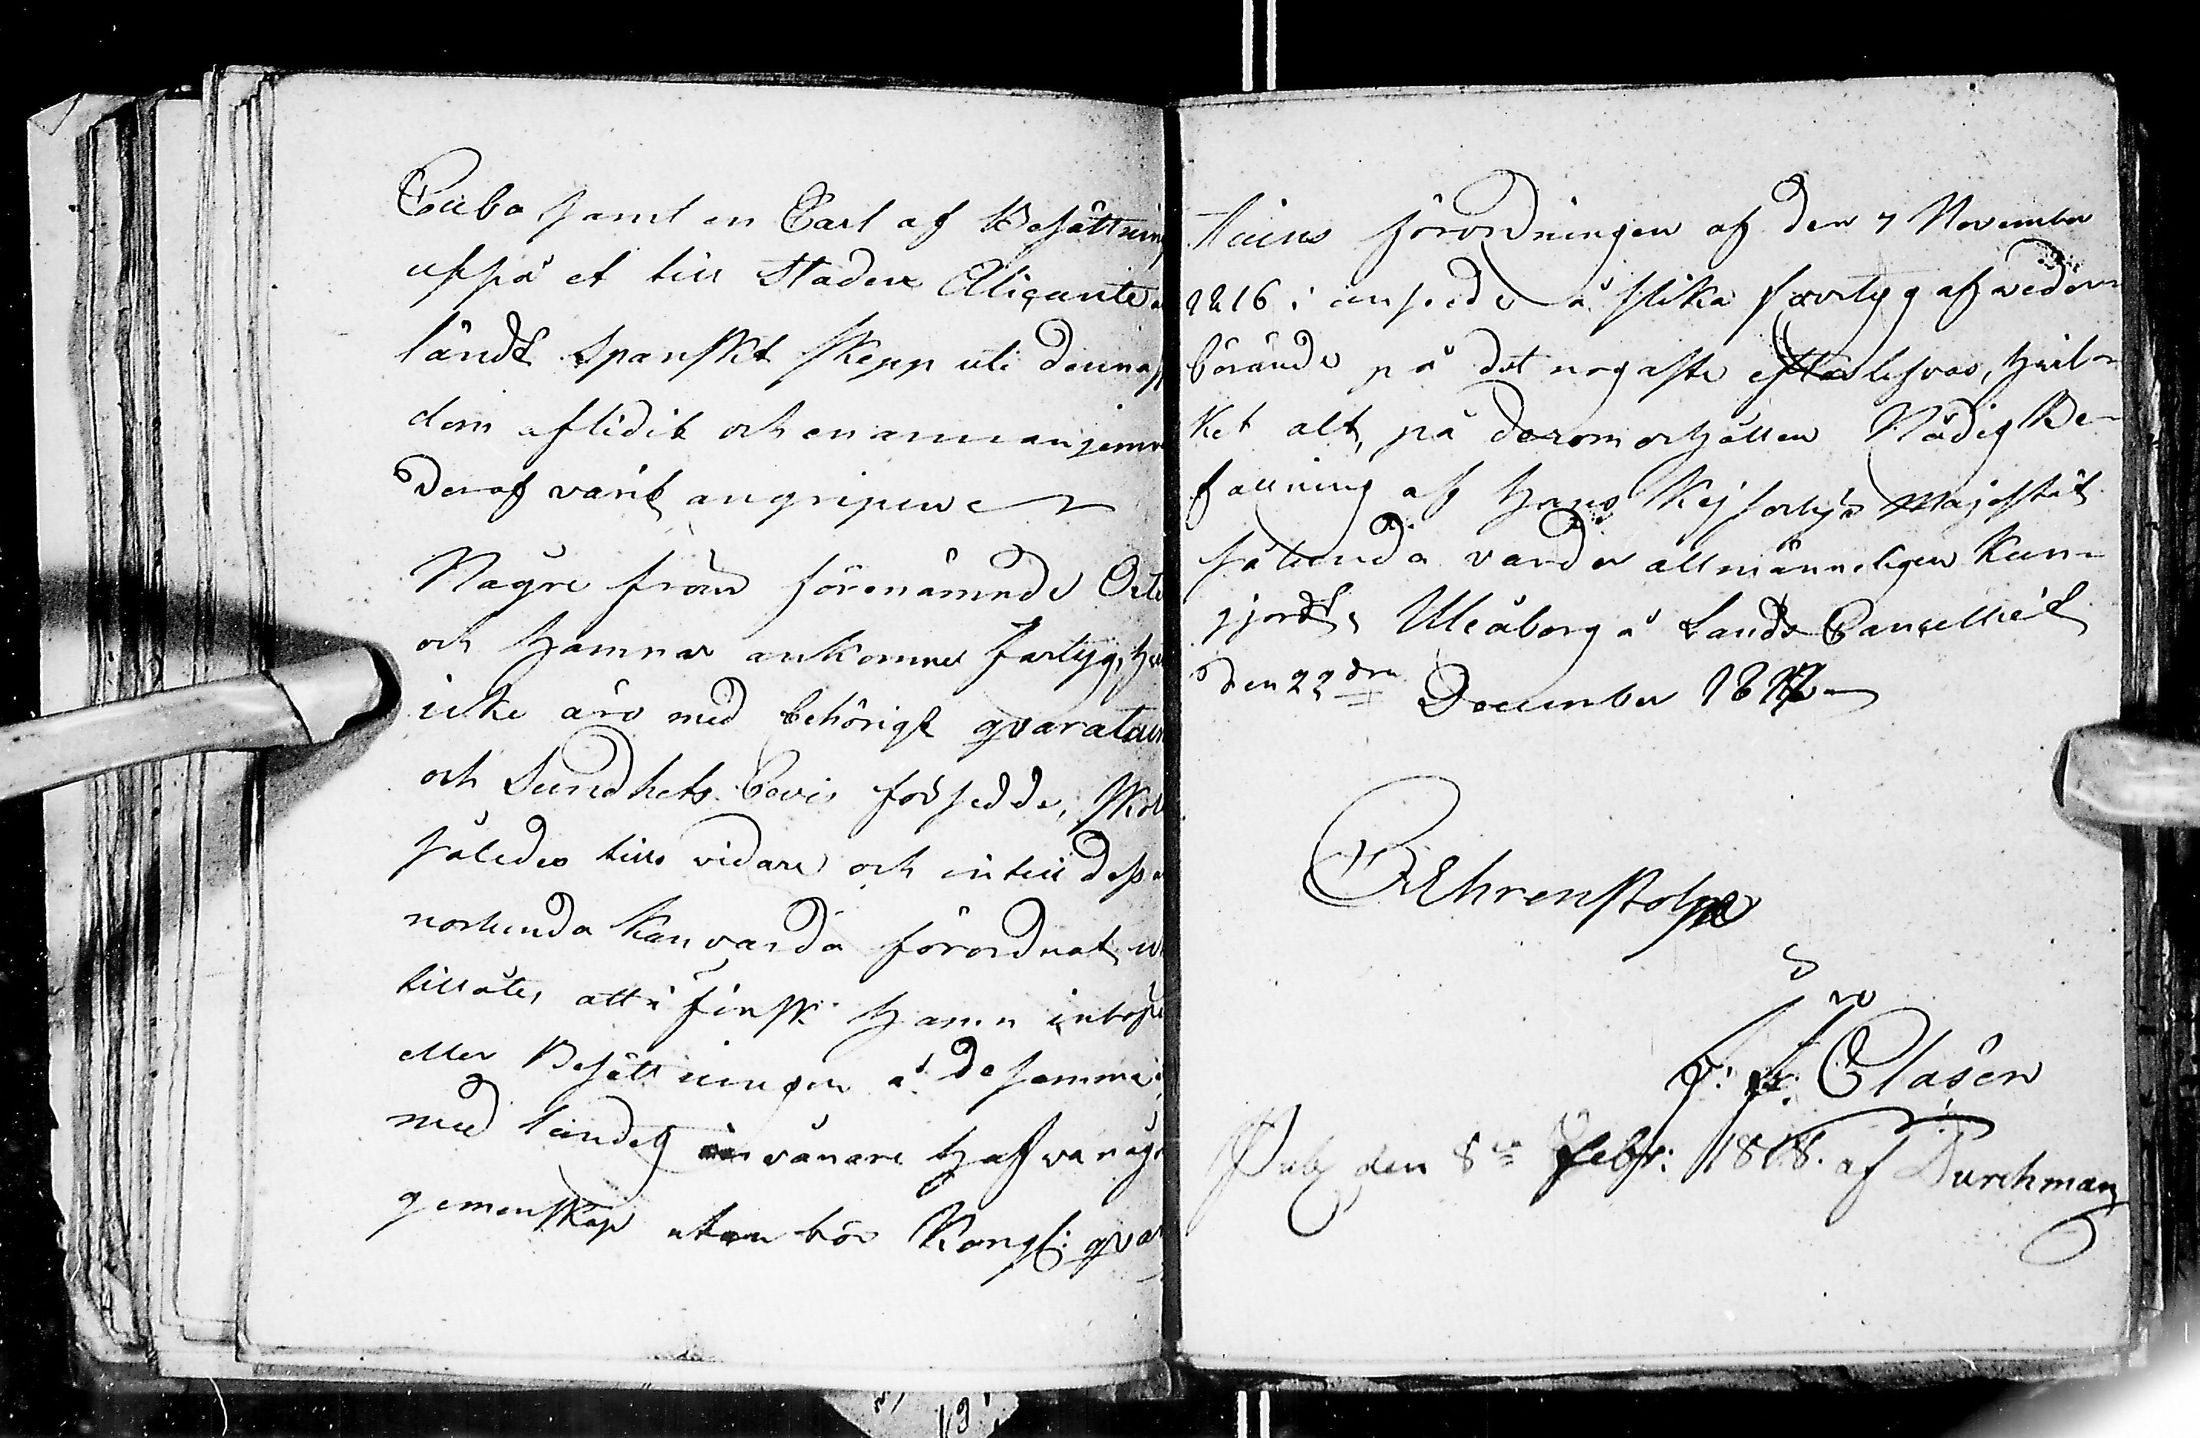 Cuba samt en Carl af Besättning
uppå et till Staden Alicante
ländt Spanskt Skepp uti denna
dom aflidit och en annan jemn
deraf varit angripen
Några från förenämnde Orter
och Hamnar ankomne Fartyg, h
icke äro med behörigt qvaratain
och Sundhets bevis försedde, Skol
således tills vidare och intill dess
norlunda kan varda förordnat,
tillåtes att i finsk Hamn inlöpa
eller Besättningen å de samma
med landets invånare hafva någo
gemenskap utan bör Kongl: qvar
tains förordningen af den 7 November
1816 i anseende å slika favrtyg af veder-
börande på det nogaste efterlefvas, hvil-
ket alt, på derom erhållen Nådig Be-
fallning af Hans Kejserliga Majestät
sålunda varder allmänneligen kun-
gjordt, Uleåborg å Lands Cancelliet
den 22 dra December 1817
Ehrenstolpe
Clasén
Publ den 8de Febr: 1818. af Durchman
13